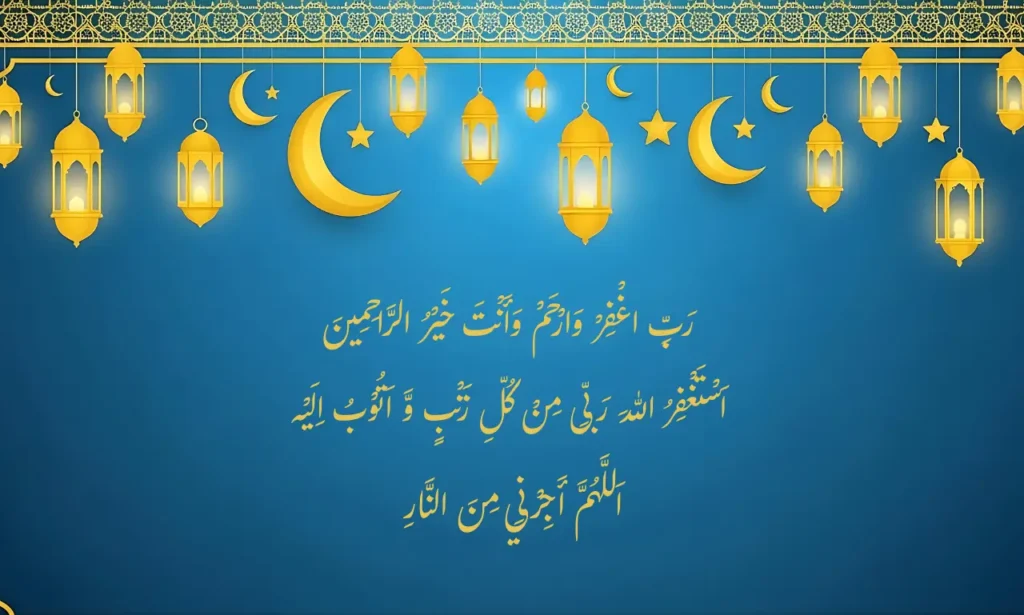 رَبِّ اغْفِرْ وَارْحَمْ وَأَنْتَ خَيْرُ الرَّاحِمِينَ
اَسْتَغْفِرُ اللهَ رَبِّی مِنْ کُلِّ زَنْبٍ وَّ اَتُوْبُ اِلَیْہِ
اَللَّهُمَّ أَجِرْنِي مِنَ النَّارِ